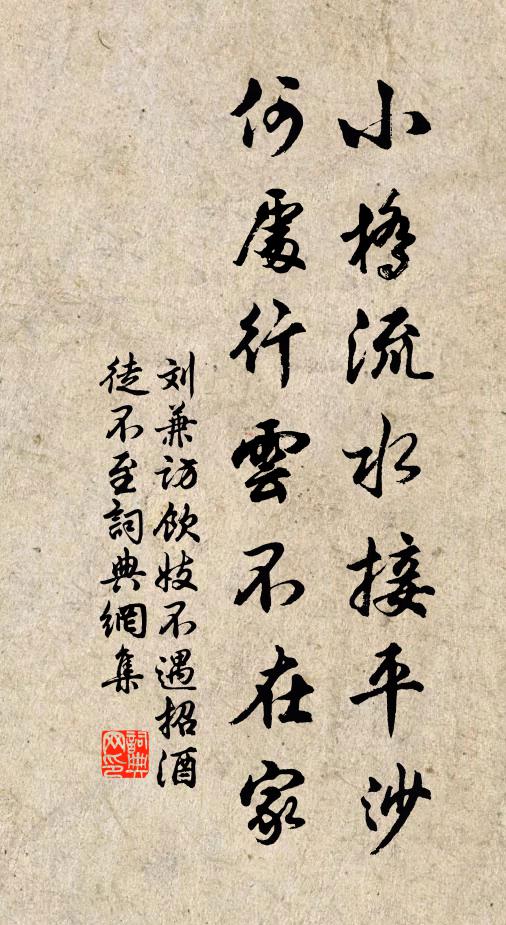 小橋流水接平沙
何處行雲不在家
刘兼访飲妓不遇招酒
徒不至詞典網集
詞典
网印